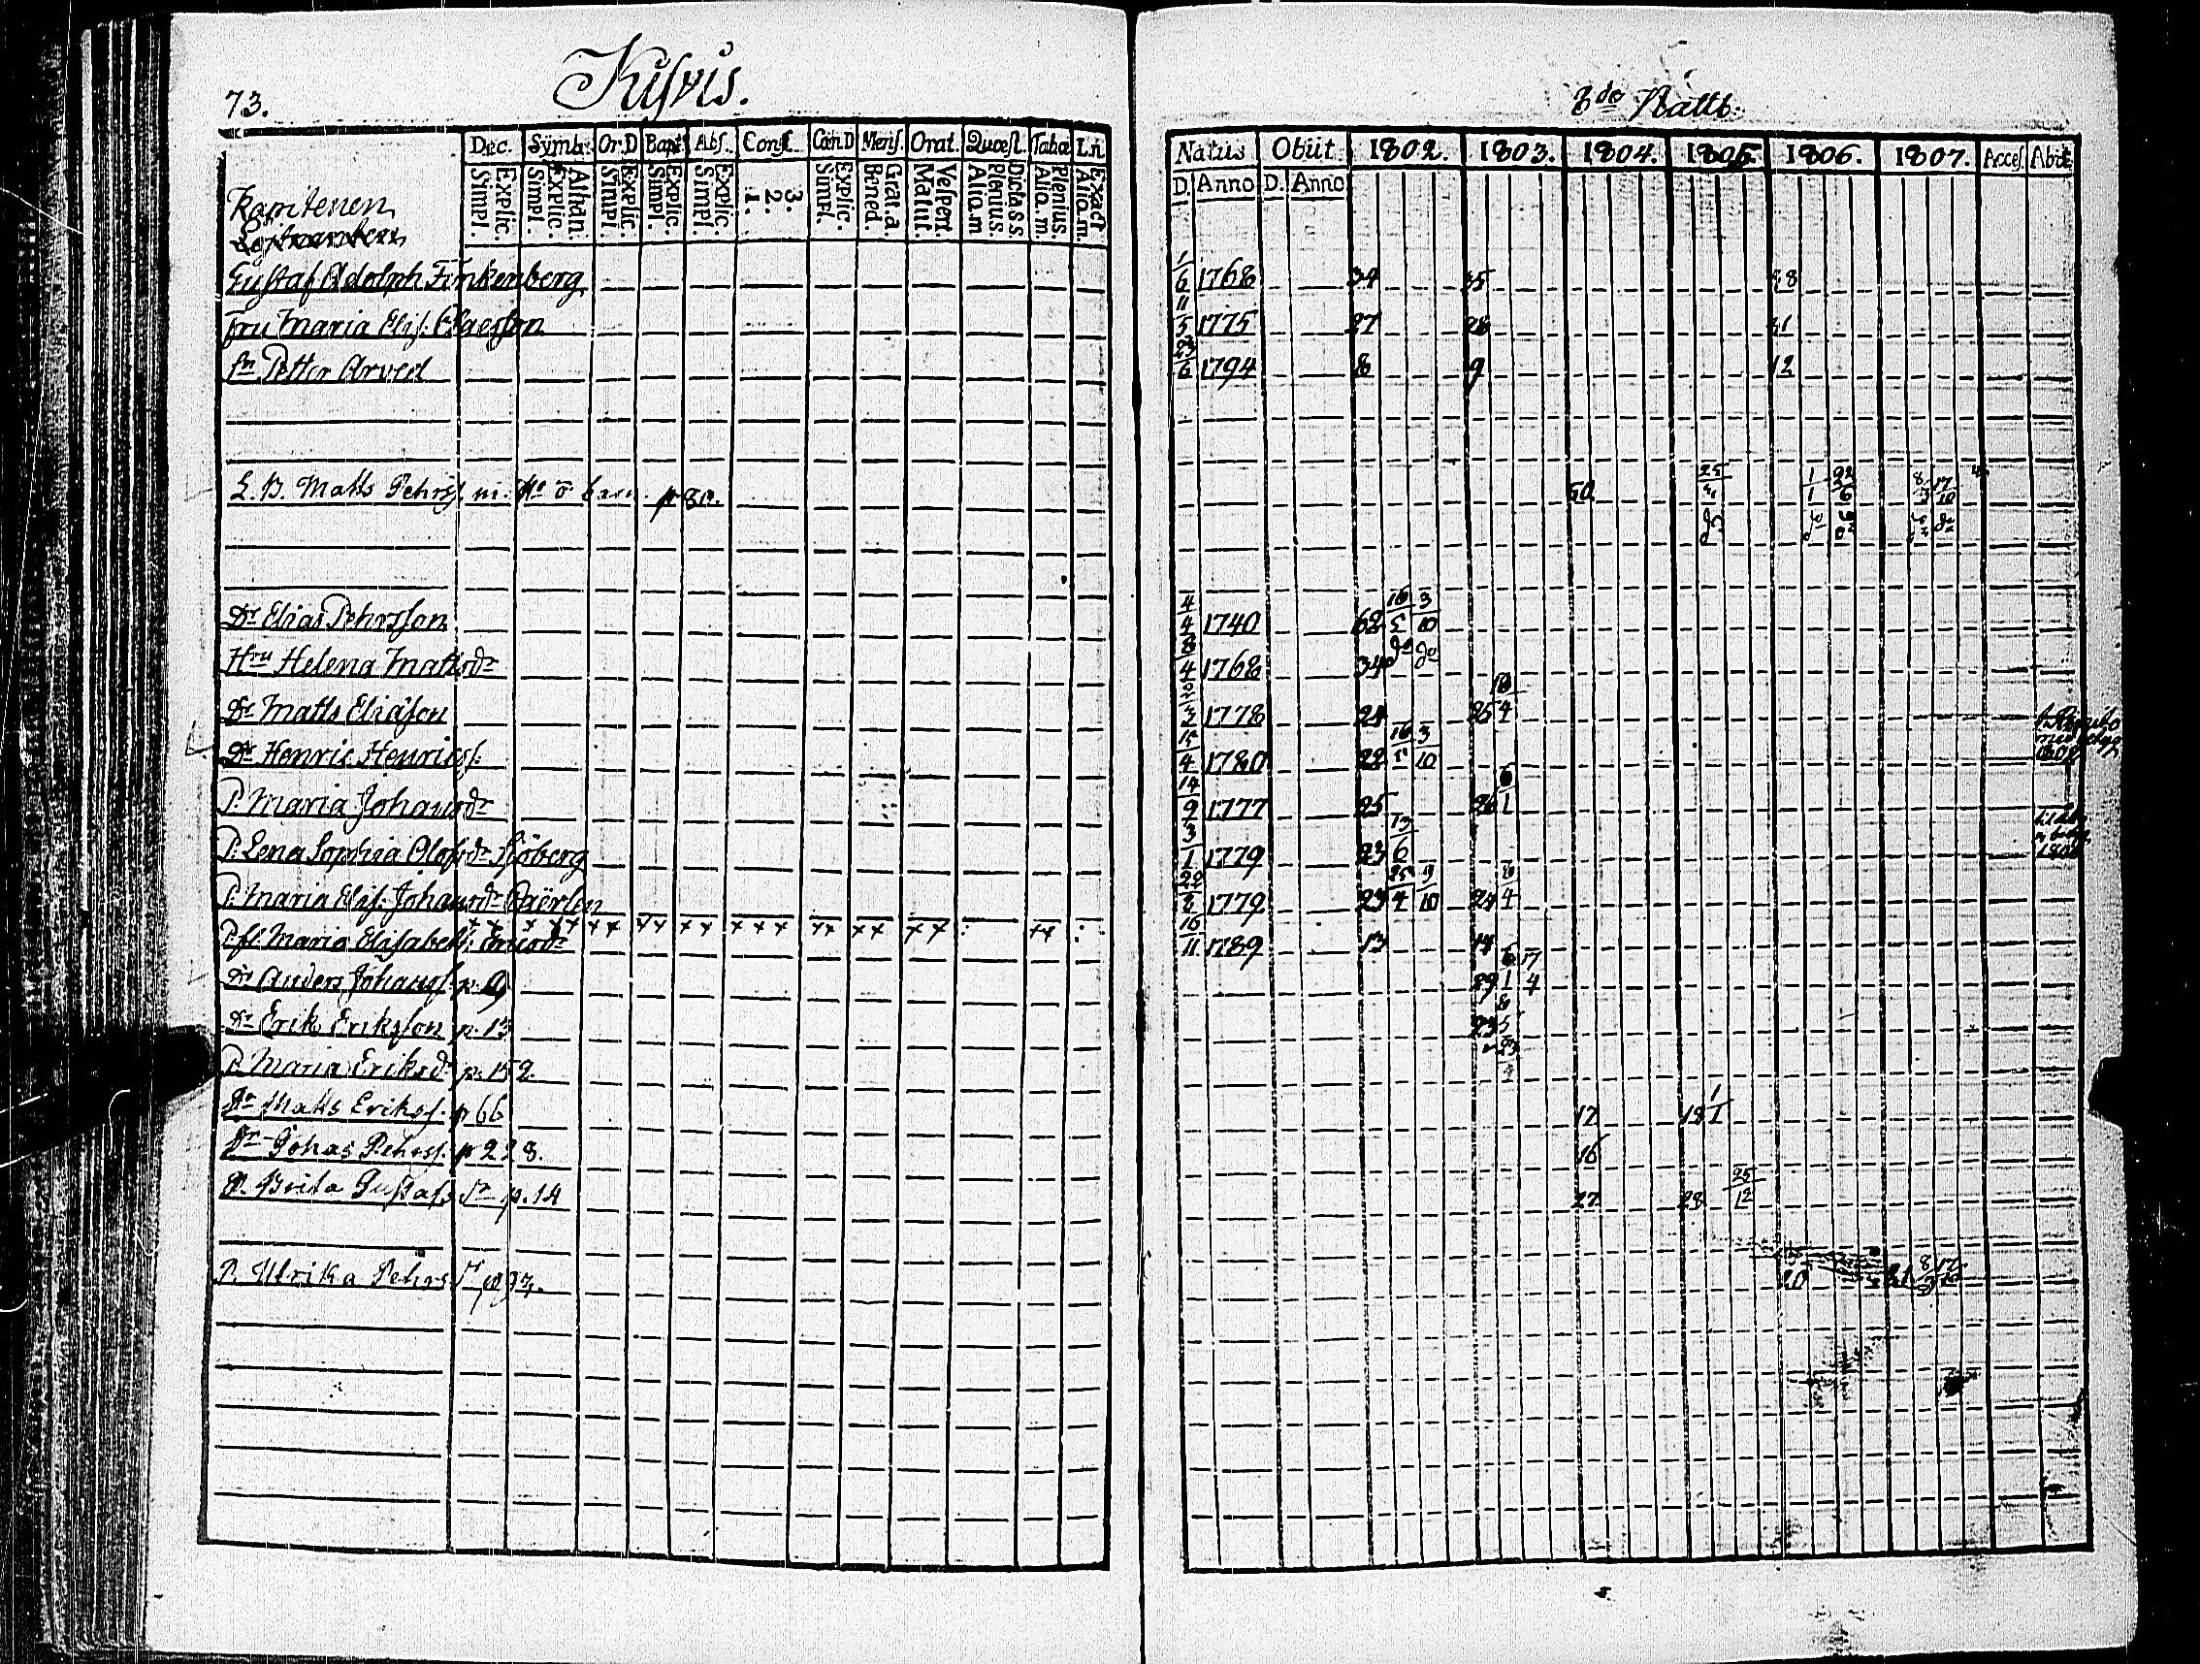 73.
Kusvis.
Dec. Symb: Or.D Bapt Abs. Conf. Cœn D Mens. Orat. Quæst. Taba L.n
Explic. Simpl. Athan. Explic. Simpl. Explic. Simpl. Explic. Simpl. Explic. Simpl. 3. 2. 1. Explic. Simpl. Grat.a. Bened. Vespert. Matut. Dicta s s. Plenius Aliq.m Plenius. Aliq.m. Exact Aliq.m.
Kapitenen
Gustaf Adolph Finkenberg
Fru Maria Elis. Claesson
Sn Petter Arved
L. B. Matts Pehrss. m. Ho o barn. p 80.
Dr Elias Pehrsson
Hru Helena Mattsdr
Dr Matts Eliasson
Dr Henric Henricss.
P. Maria Johansdr
P. Lena Sophia Olofsdr Sjöberg
P. Maria Elis. Johansdr
P. fl. Maria Elisabeth
Dr Anders Johanss. p. 9
Dr Erik Eriksson p. 13
P. Maria Eriksdr p. 152
Dr Matts Erikss. p 66
Dr Johas Pehrss. p 228.
P. Brita Gustafsdr p. 14
P. Ulrika Pehrsdr p 97.
8de Natts.
Natus Obiit 1802. 1803. 1804. 1805. 1806. 1807. Acces. Abit
D. Anno D. Anno
1/6 1768 34 35 38
11/5 1775 27 28 31
23/6 1794 8 9 12
50 1/1 22/6 8/3 17/10
do do do do do
4/4 1740 62 16/5 3/10
8/4 1768 34 do do
2/3 1778 24 25 18/4
15/4 1780 22 16/5 3/10
14/9 1777 25 26 6/1
3/1 1779 23 13/6
1779 23 25/4 9/10 24
16/11 1789 13 14
29 6/1 17/4
23 8/5
23
17 18 1/1
16
27 28 25/12
20 21 8/3 17/10